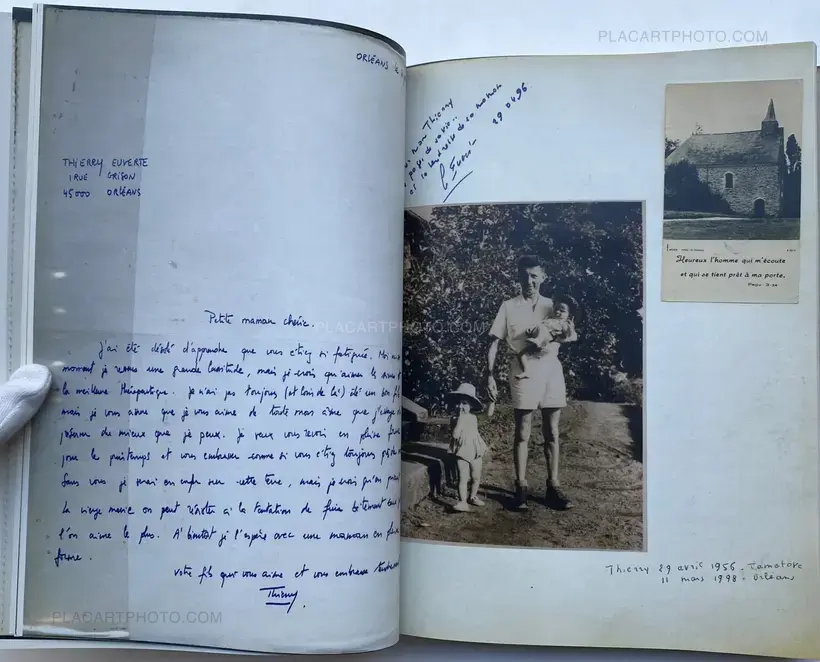 PLACARTPHOTO.COM
ORLÉANS le
THIERRY EUVERTE
1 RUE GRISON
45000 ORLÉANS
Petite maman chérie.
J'ai été désolé d'apprendre que vous étiez si fatiguée. Moi
moment je ressens une grande lassitude, mais je crois qu'aimer
la meilleure thérapeutique. Je n'ai pas toujours (et loin de là) été un bon fils
mais je vous assure que je vous aime de toute mon âme que j'essaye
du mieux que je peux. Je veux vous revoir en pleine forme
pour le printemps et vous embrasser comme si vous étiez toujours
Sans vous je en enfer sur cette terre, mais je crois qu'en
la vierge marie on peut résister à la tentation de
l'on aime le plus. A bientôt je l'espère avec une maman en pleine
forme.
votre fils qui vous aime et vous embrasse tendrement
Thierry
mon Thierry
de sa vie..
et le de sa maman
29 04 96
PLACARTPHOTO.COM
Heureux l'homme qui m'écoute
et qui se tient prêt à ma porte.
PLACARTPHOTO.COM
Thierry 29 avril 1956 - Tamatave
11 mars 1998 - Orléans
PLACARTPHOTO.COM
PLACARTPHOTO.COM